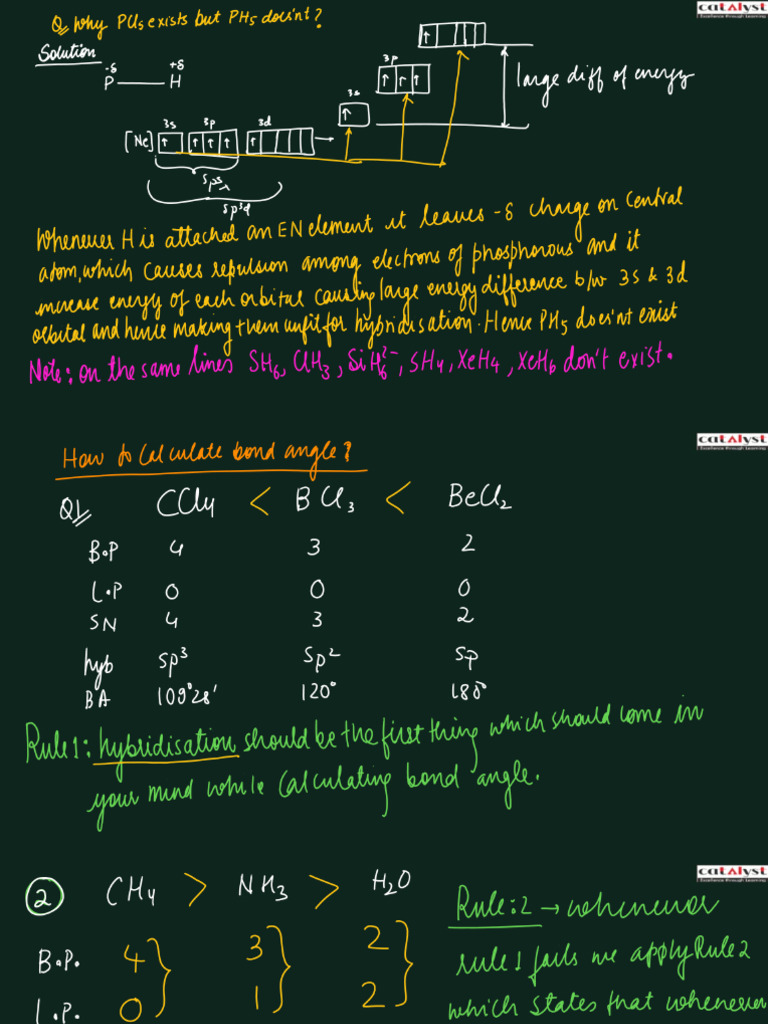 Q Why PCl5 exists but PH5 does'nt?
Solution
-δ +δ
P — H
3s 3p 3d
[Ne]
sp3
sp3d
3s
3p
large diff of energy
Whenever H is attached an EN element it leaves -δ charge on central
atom, which causes repulsion among electrons of phosphorous and it
increase energy of each orbital causing large energy difference b/w 3s & 3d
orbital and hence making them unfit for hybridisation. Hence PH5 does'nt exist
Note: on the same lines SH6, ClH3, SiH6 2-, SH4, XeH4, XeH6 don't exist.
catalyst
How to calculate bond angle?
Q1 CCl4 < BCl3 < BeCl2
B.P 4 3 2
L.P 0 0 0
SN 4 3 2
hyb sp3 sp2 sp
BA 109°28' 120° 180°
Rule 1: hybridisation should be the first thing which should come in
your mind while calculating bond angle.
catalyst
2 CH4 > NH3 > H2O
B.P. 4 3 2
L.P. 0 1 2
catalyst
Rule:2 → whenever
rule 1 fails we apply Rule 2
which states that whenever